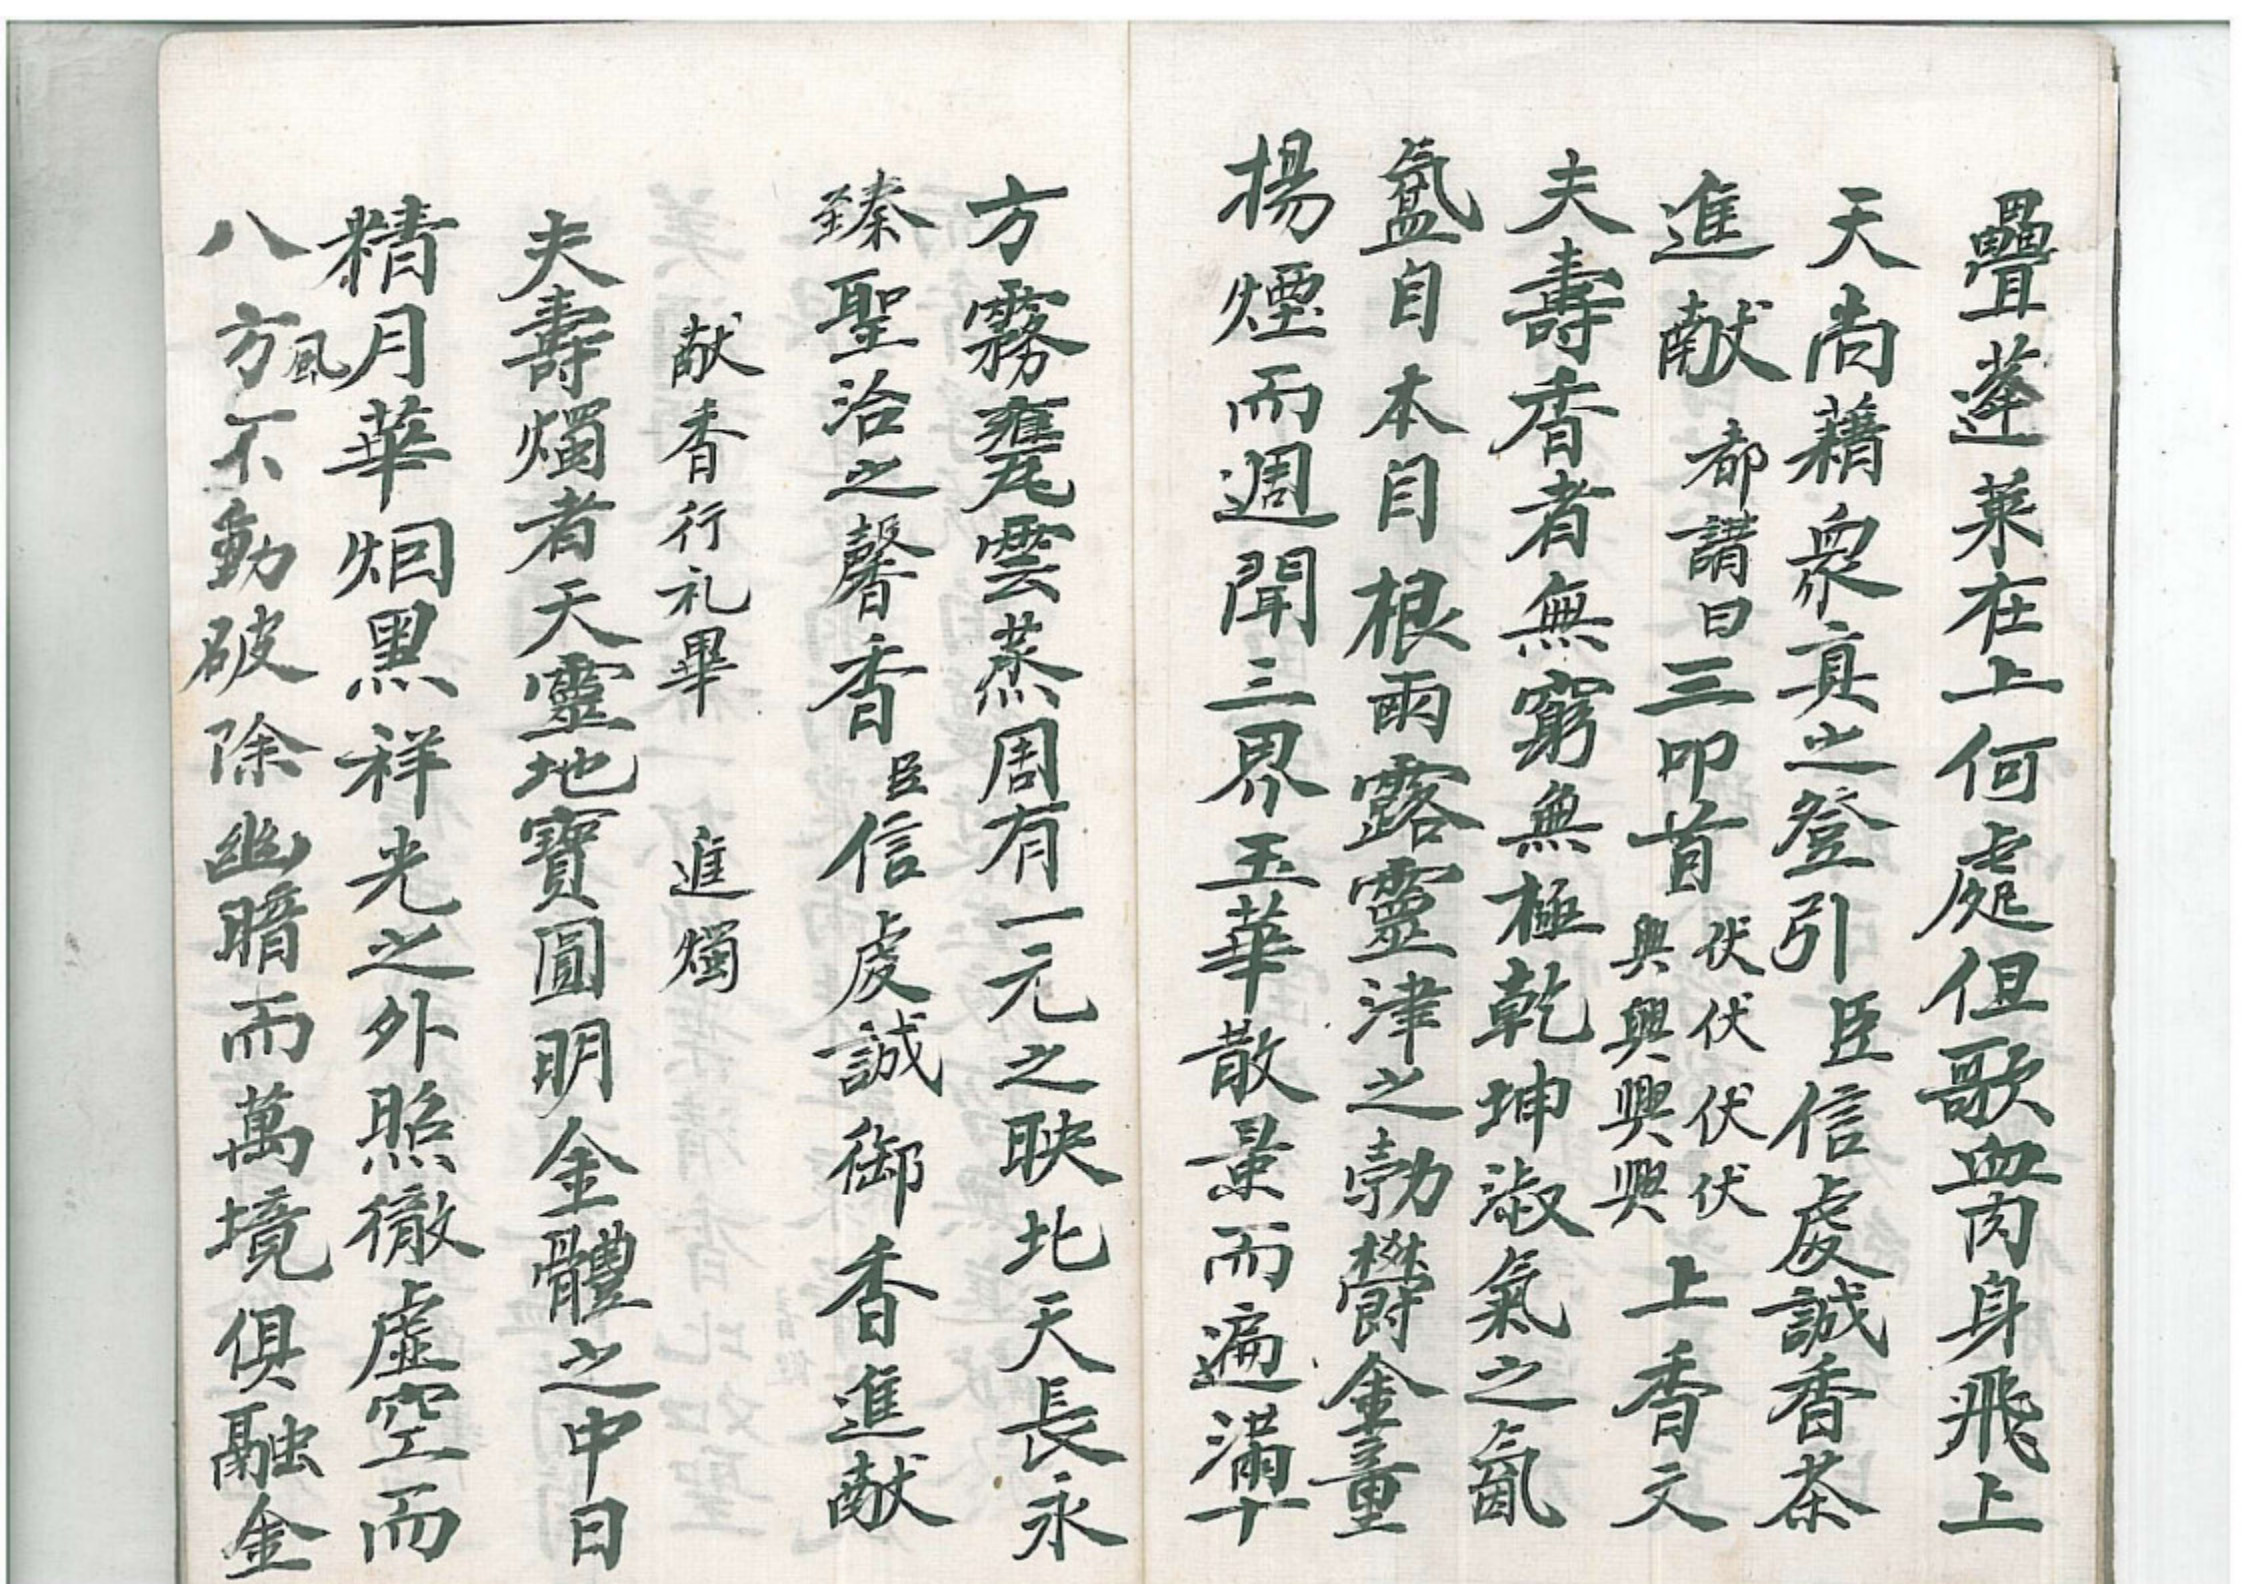 疊蓬萊在上何處但歌血肉身飛上
天尚藉眾真之登引臣信虔誠香茶
進献都講曰三叩首伏興伏興伏興伏興上香文
夫壽香者無窮無極乾坤淑氣之氤
氳自本自根雨露靈津之勃欝金童
揚煙而週聞三界玉華散景而遍滿十
方霧甕雲蒸周有一元之映北天長永
臻聖洽之馨香臣信虔誠御香進献
献香行礼畢 進燭
夫壽燭者天靈地寶圓明金體之中日
精月華烟黑祥光之外照徹虛空而
八方風不動破除幽暗而萬境俱融金